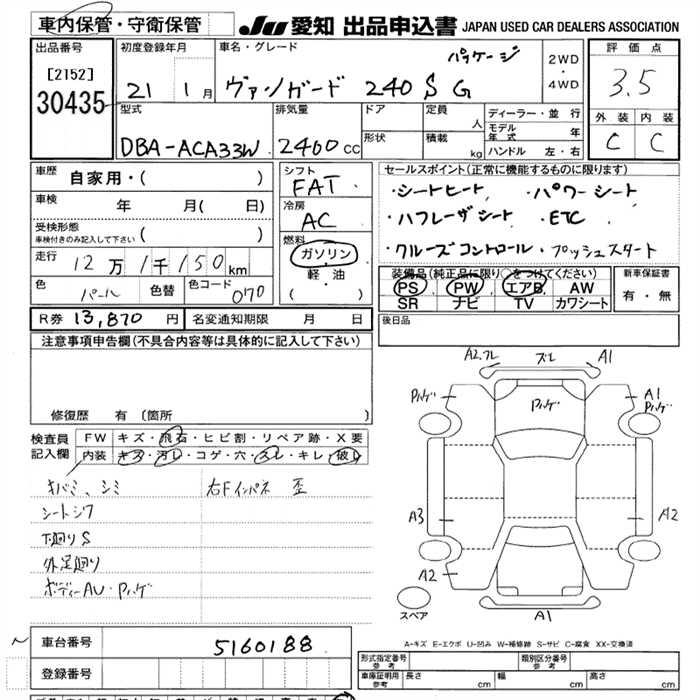 車内保管・守衛保管
JU 愛知 出品申込書 JAPAN USED CAR DEALERS ASSOCIATION
出品番号
[2152]
30435
初度登録年月
21 1月
車名・グレード
パッケージ
ヴァンガード 240 S G
2WD
・
4WD
評価点
3.5
外装 内装
C C
型式
DBA-ACA33W
排気量
2400 CC
ドア
形状
定員
人
積載
kg
ディーラー・並行
モデル年式 年
ハンドル 左・右
車歴
自家用・( )
車検
年 月( 日)
受検形態
車検付きのみ記入して下さい ( )
走行
12万1千150km
色
パール
色替
色コード
070
シフト
FAT
冷房
AC
燃料
ガソリン
軽油
( )
セールスポイント(正常に機能するものに限ります)
・シートヒート ・パワーシート
・ハーフレーザシート ・ETC
・クルーズコントロール・プッシュスタート
装備品(純正品に限り○をつけてください)
PS PW エアB AW
SR ナビ TV カワシート
新車保証書
有・無
R券 13,870円
名変通知期限 月 日
後日品
注意事項申告欄(不具合内容等は具体的に記入して下さい)
修復歴 有〔箇所 〕
検査員
記入欄
FW キズ・飛石・ヒビ割・リペア跡・X要
内装 キズ・汚レ・コゲ・穴・スレ・キレ・破レ
キバミ、シミ
右Fインパネ 歪
シートシワ
下廻りS
外足廻り
ボディーAU・Pハゲ
A2.フレ ズレ A1
Pハゲ
Pハゲ
A1
Pハゲ
A3
A2
A2
A1
スペア
A-キズ E-エクボ U-凹み W-補修跡 S-サビ C-腐食 XX-交換済
車台番号
5160188
登録番号
形式指定番号
参考
類別区分番号
参考
車庫証明用
参考
長さ cm
幅 cm
高さ cm